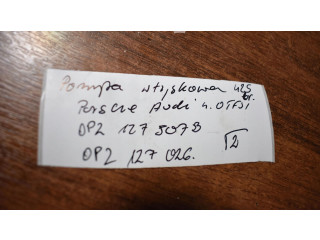 Pompa wtryskowa 425
Porsche Audi 4.0TFSI
OP2 127 507B
OP2 127 026.